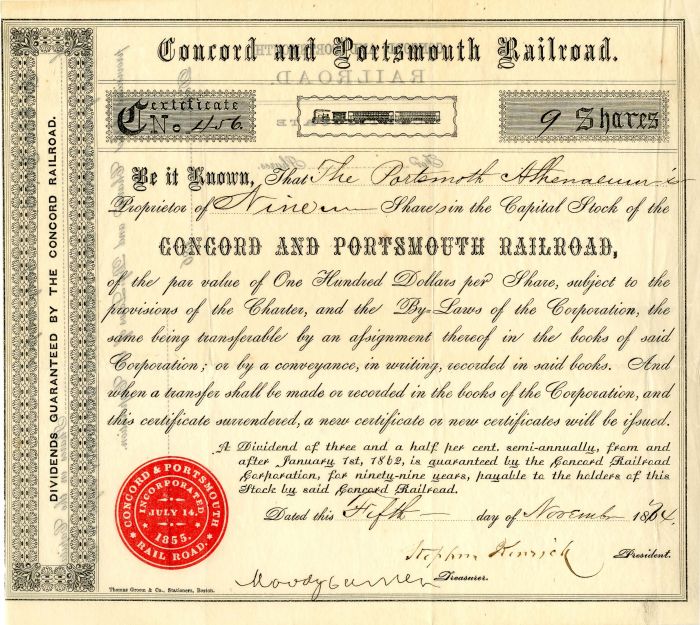 Concord and Portsmouth Railroad.
Certificate
No 456
9 Shares
Be it Known, That The Portsmoth Athenaeum is
Proprietor of Nine Shares in the Capital Stock of the
CONCORD AND PORTSMOUTH RAILROAD,
of the par value of One Hundred Dollars per Share, subject to the
provisions of the Charter, and the By-Laws of the Corporation, the
same being transferable by an assignment thereof in the books of said
Corporation; or by a conveyance, in writing, recorded in said books. And
when a transfer shall be made or recorded in the books of the Corporation, and
this certificate surrendered, a new certificate or new certificates will be issued.
A Dividend of three and a half per cent. semi-annually, from and
after January 1st, 1862, is guaranteed by the Concord Railroad
Corporation, for ninety-nine years, payable to the holders of this
Stock by said Concord Railroad.
Dated this Fifth day of November 1864.
Stephen Kenrick President.
Moody Currier Treasurer.
DIVIDENDS GUARANTEED BY THE CONCORD RAILROAD.
CONCORD & PORTSMOUTH
RAIL ROAD.
INCORPORATED
JULY 14.
1855.
Thomas Groom & Co., Stationers, Boston.